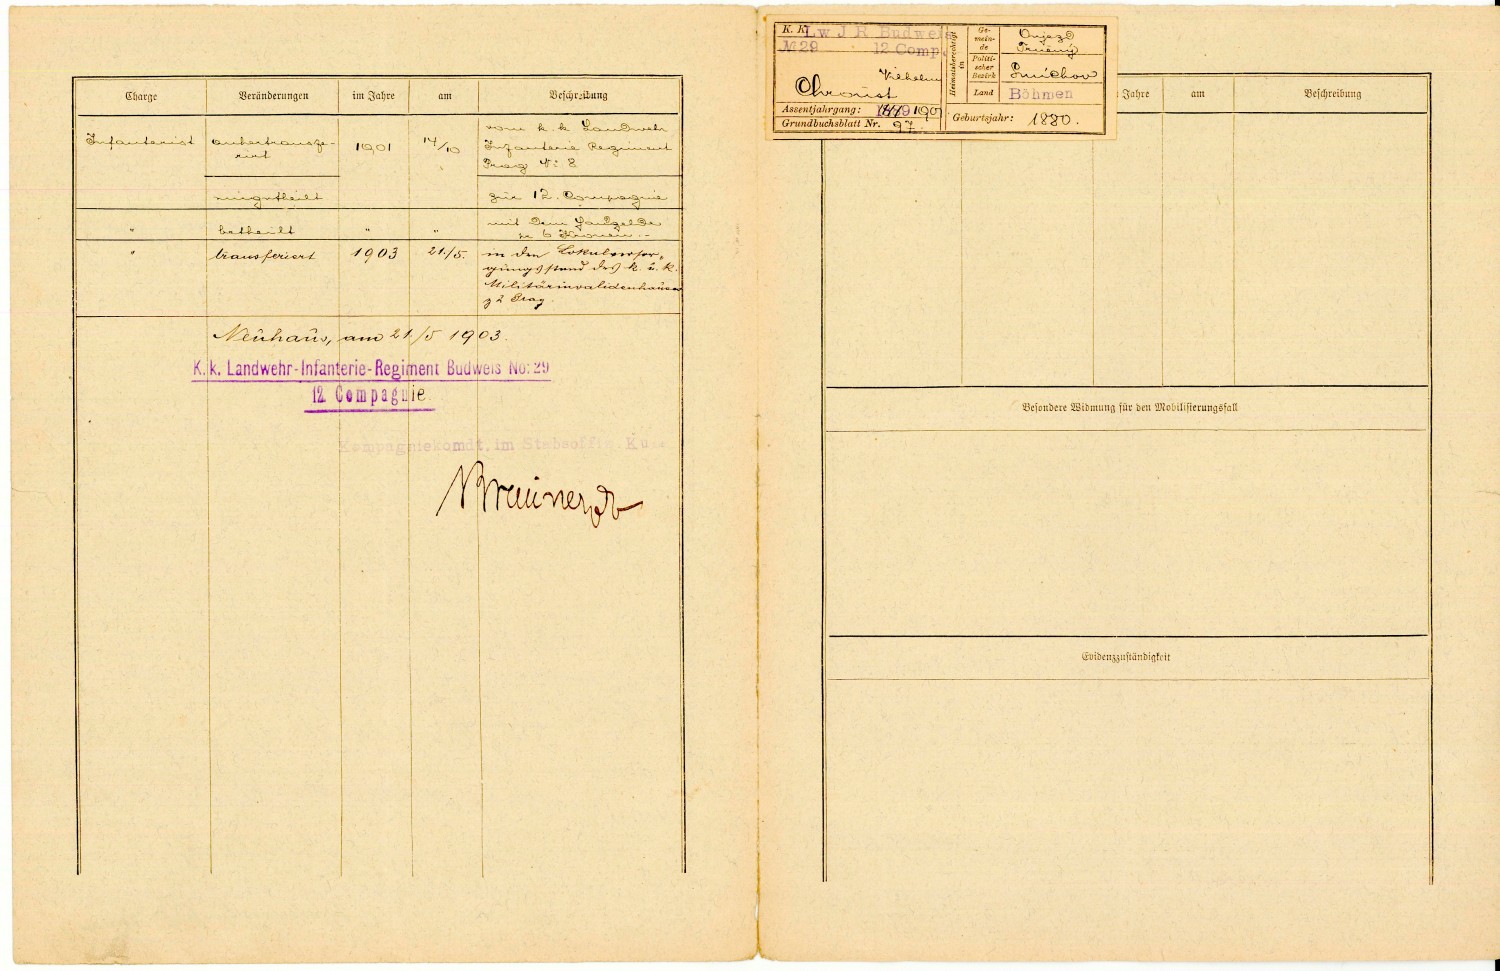 Charge Veränderungen im Jahre am Beschreibung
Infanterist anhertransfe- 1901 14/10 vom k. k. Landwehr
rirt Infanterie Regiment
Prag No: 8
eingetheilt zur 12. Compagnie
" betheilt " " mit dem Handgelde
" transferiert 1903 21./5. in den Lokalversor-
gungsstand des k. u. k.
Militärinvalidenhauses
zu Prag.
Neuhaus, am 21/5 1903.
K. k. Landwehr-Infanterie-Regiment Budweis No: 29
12. Compagnie.
Kompagniekomdt. im Stabsoffiz. Ku
K. k. Lw J R Budweis
№ 29 12 Comp.
Wilhelm
Chronist
Assentjahrgang: 1901
Grundbuchsblatt Nr. 97.
Heimatsberechtigt in
Ge-mein-de
Politi-scher Bezirk Smichov
Land Böhmen
Geburtsjahr: 1880.
Jahre am Beschreibung
Besondere Widmung für den Mobilisierungsfall
Evidenzzuständigkeit